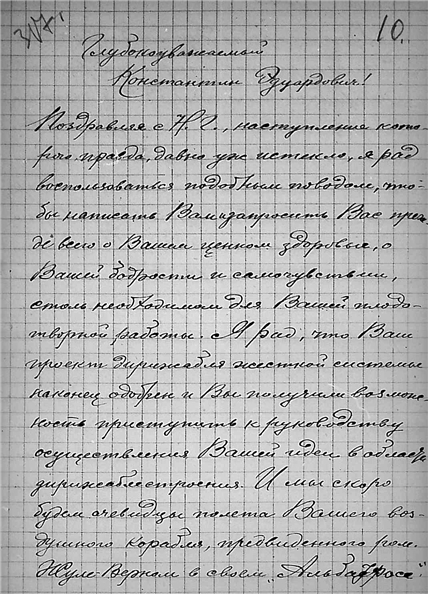 317.
10.
Глубокоуважаемый
Константин Эдуардович!
Поздравляя с Н. Г., наступление кото-
рого правда, давно уж истекло, я рад
воспользоваться подобным поводом, что-
бы написать Вам и запросить Вас преж-
де всего о Вашем ценном здоровье, о
Вашей бодрости и самочувствии,
столь необходимом для Вашей плодо-
творной работы. Я рад, что Ваш
проект дирижабля жесткой системы
наконец одобрен и Вы получили возмож-
ность приступить к руководству
осуществления Вашей идеи в области
дирижаблестроения. И мы скоро
будем очевидцы полета Вашего воз-
душного корабля, предвиденного ром.
Жуль-Верном в своем „Альбатросе".